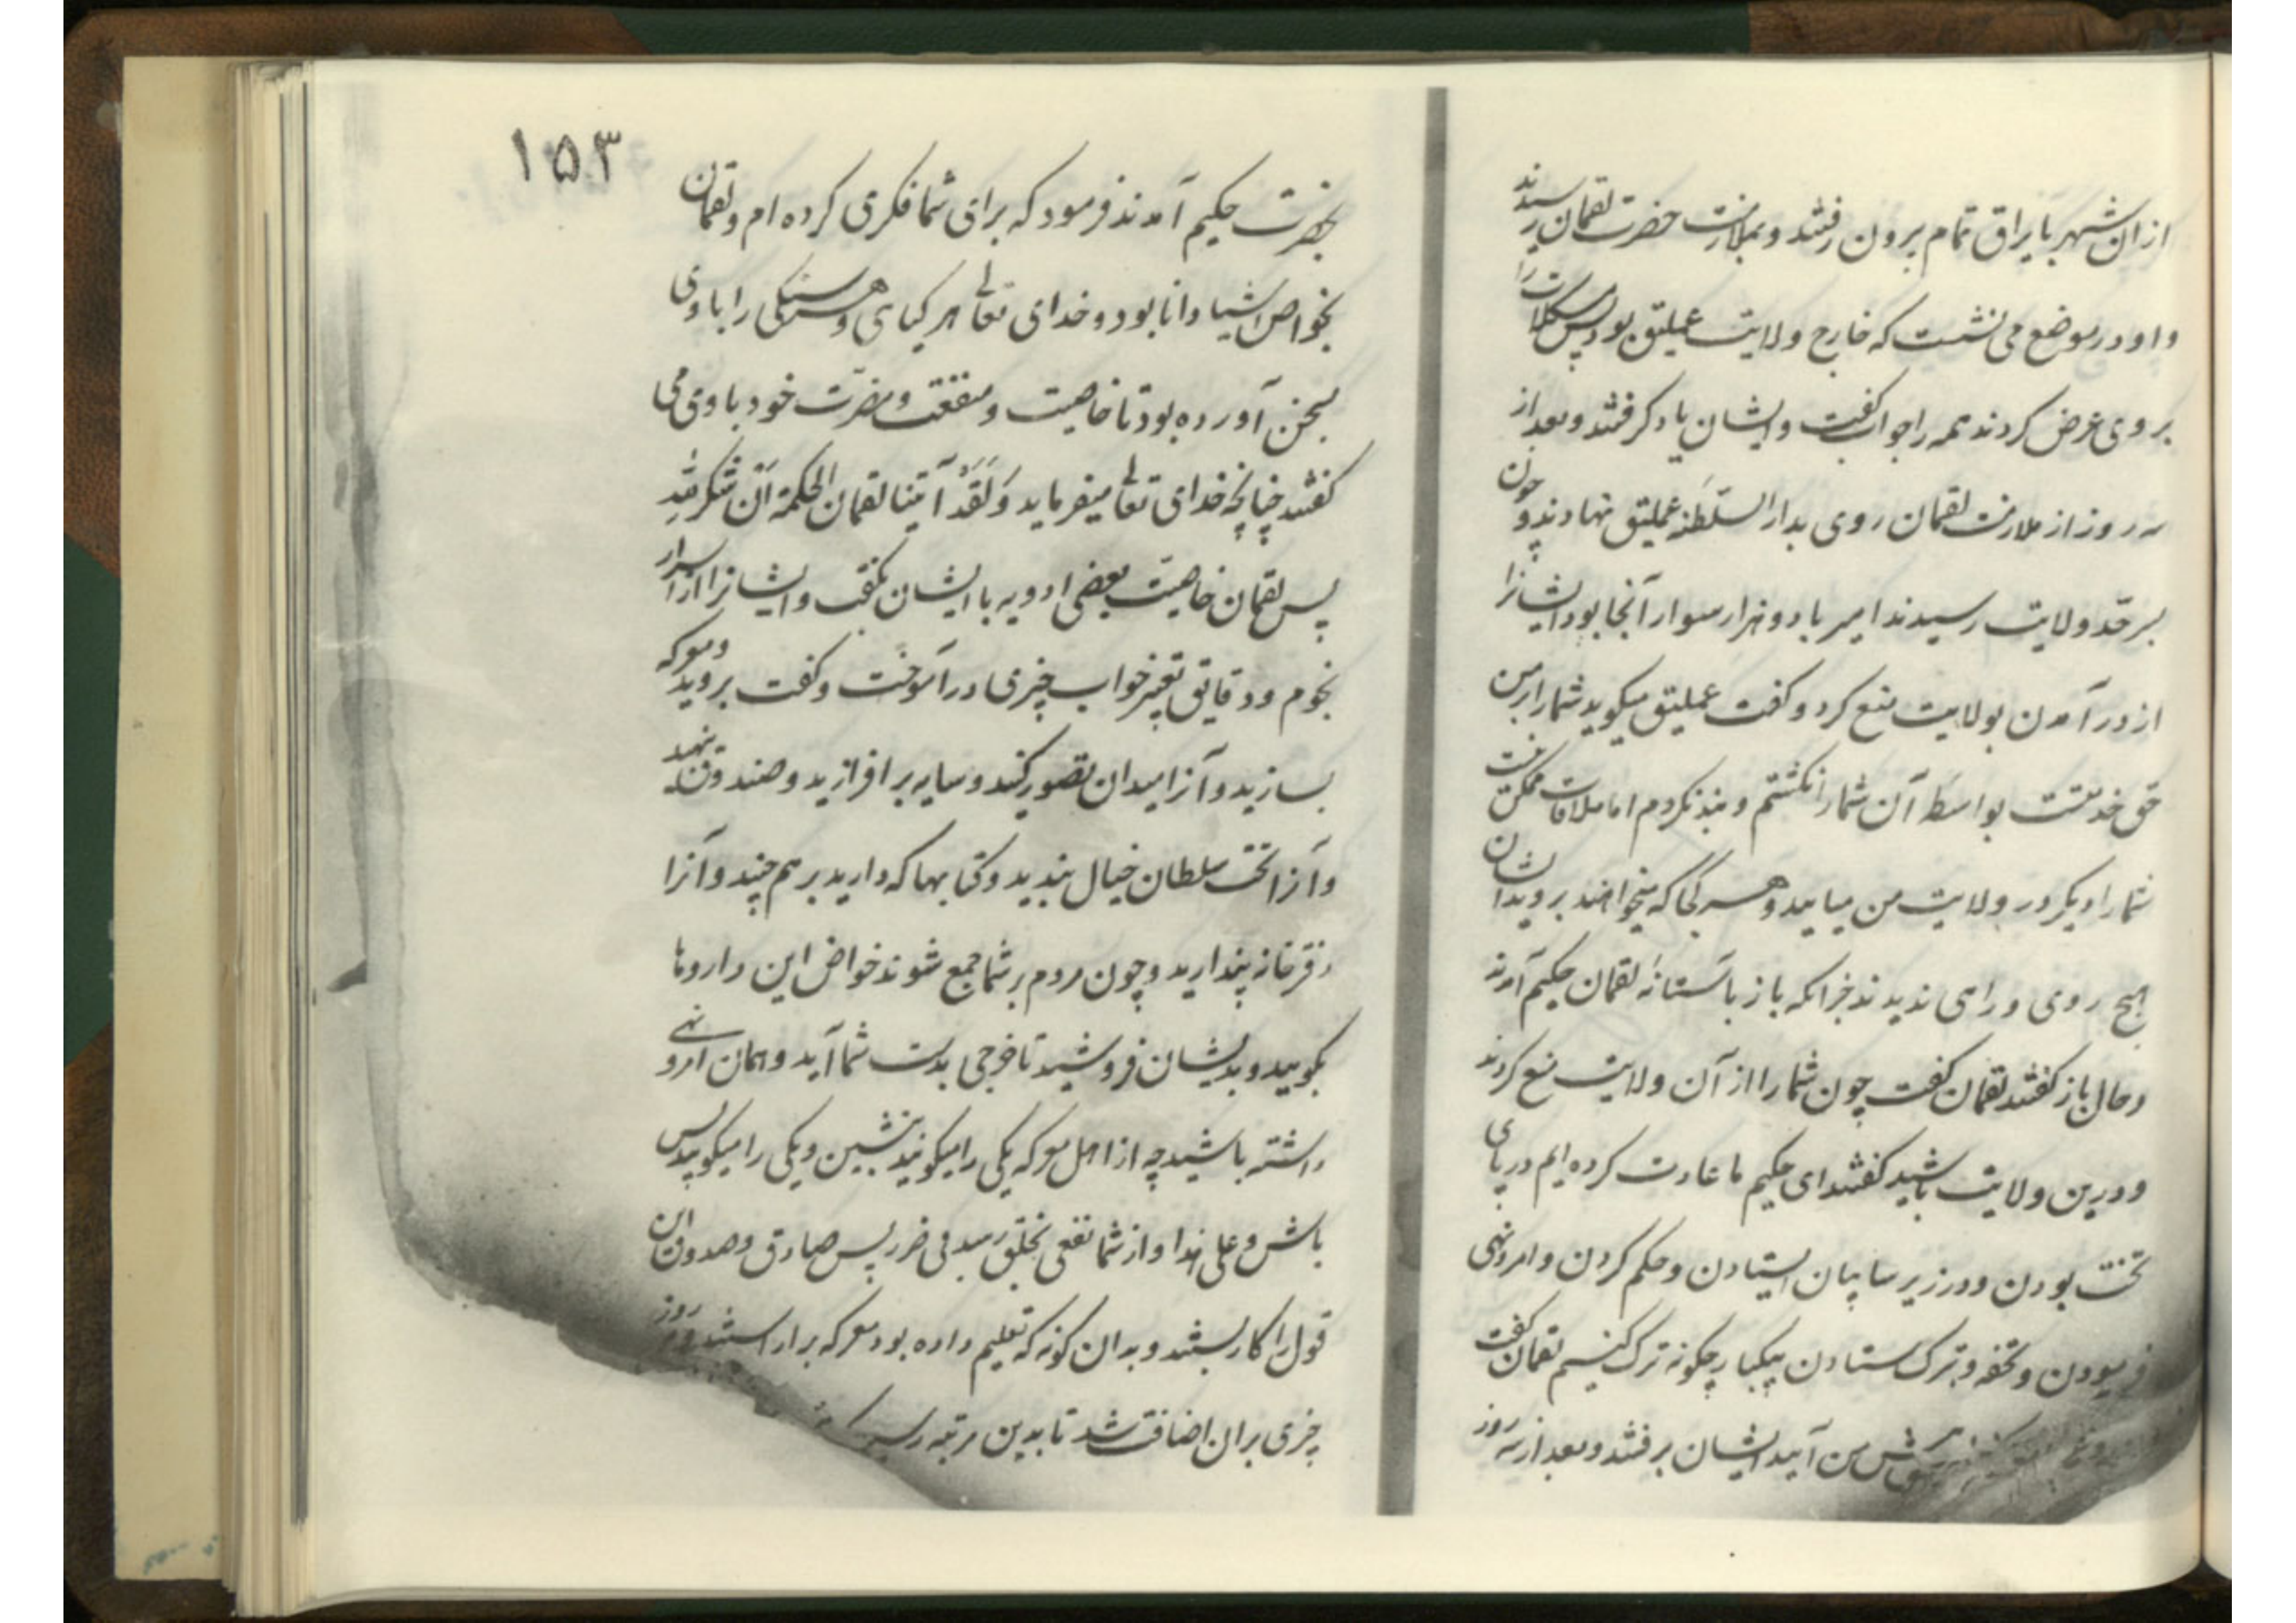 ازان شهر با یراق تمام برون رفتند و بملازمت حضرت لقمان رسیدند
و او در موضع می نشست که خارج ولایت عملیق بود پس مشکلات را
بر وی عرض کردند همه را جواب گفت و ایشان یاد گرفتند و بعد از
سه روز از ملازمت لقمان روی بدار السلطنه عملیق نهادند و چون
بسر حد ولایت رسیدند امیر با دو هزار سوار آنجا بود ایشانرا
از در آمدن بولایت منع کرد و گفت عملیق میگوید شما را بر من
حق خدمتست بواسطه آن شما را نکشتم و بند نکردم اما ملاقات ممکن نیست
شما را دیگر در ولایت من میایید و هر کجا که میخواهند بروید ایشان
هیچ روی و راهی ندیدند جز آنکه باز باستانه لقمان حکیم آمدند
و حال باز گفتند لقمان گفت چون شما را از آن ولایت منع کردند
و درین ولایت باشید گفتند ای حکیم ما عادت کرده ایم در پای
تخت بودن و در زیر سایبان ایستادن و حکم کردن و امر و نهی
فرمودن و تحفه و تبرک ستادن بیکبار چگونه ترک کنیم لقمان گفت
پیش من آیید ایشان برفتند و بعد از سه روز
۱۵۳
بحضرت حکیم آمدند فرمود که برای شما فکری کرده ام و لقمان
بخواص اشیا دانا بود و خدای تعالی هر گیاهی و هر سنگی را با وی
بسخن آورده بود تا خاصیت و منفعت و مضرت خود با وی می
گفتند چنانچه خدای تعالی میفرماید وَلَقَدْ آتینا لقمان الحکمة اَنِ اشْکُر لِلّٰهِ
پس لقمان خاصیت بعضی ادویه با ایشان بگفت و ایشانرا از اسرار
نجوم و دقایق تعبیر خواب چیزی در آموخت و گفت بروید و معرکه
بسازید و آنرا میدان تصور کنید و سایه بر افرازید و صندوق بنهید
و آنرا تخت سلطان خیال بندید و کتابها که دارید بر هم چنید و آنرا
دفتر خانه پندارید و چون مردم بر شما جمع شوند خواص این داروها
بگویید و بدیشان فروشید تا خرجی بدست شما آید و همان امر و نهی
داشته باشید چه از اهل معرکه یکی را میگویید بنشین و یکی را میگویید پس
باش و علی هذا و از شما نفعی بخلق رسد بی ضرر پس صادق و صدوق این
قول را کار بستند و بدان گونه که تعلیم داده بود معرکه برآراستند و هر روز
چیزی بران اضافت شد تا بدین مرتبه رسید